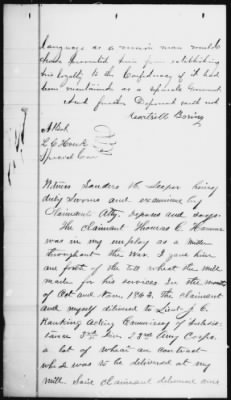 language as a union man would
have prevented him from establishing
his loyalty to the Confederacy if it had
been maintained as a separate Government
And further Deponent saith not
Boring
Attest
L C Houk
Special Com
Witness Sanders
duly Sworn and examined by
Claimants Atty. deposes and says.
The claimant Thomas C.
was in my employ as a miller
throughout the War. I gave him
one forth of the toll wheat the mill
made for his services In the month
of Oct and Nov, 1863, the claimant
and myself delivered to Lieut J. C.
Rankin Acting Commissary of Subsis-
tance 3rd Div. 23rd Army Corps.
a lot of wheat on contract
which was to be delivered at my
mill Said claimant delivered one